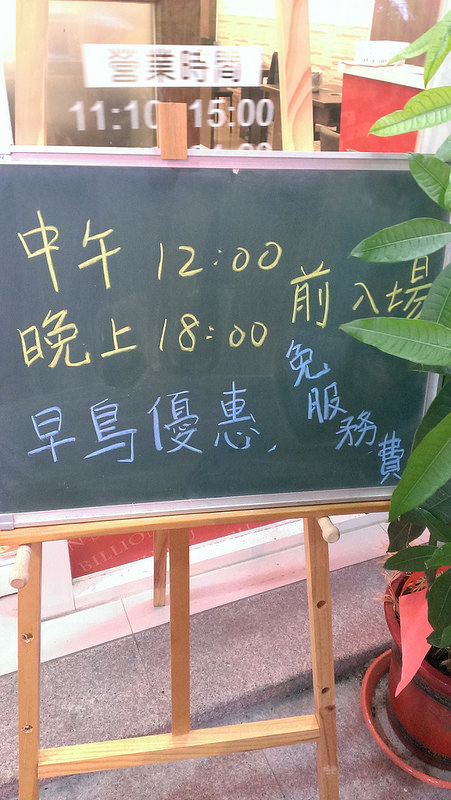 營業時間
11:10 15:00
中午 12:00
晚上 18:00
前入場
早鳥優惠,
免服務費
BILLION